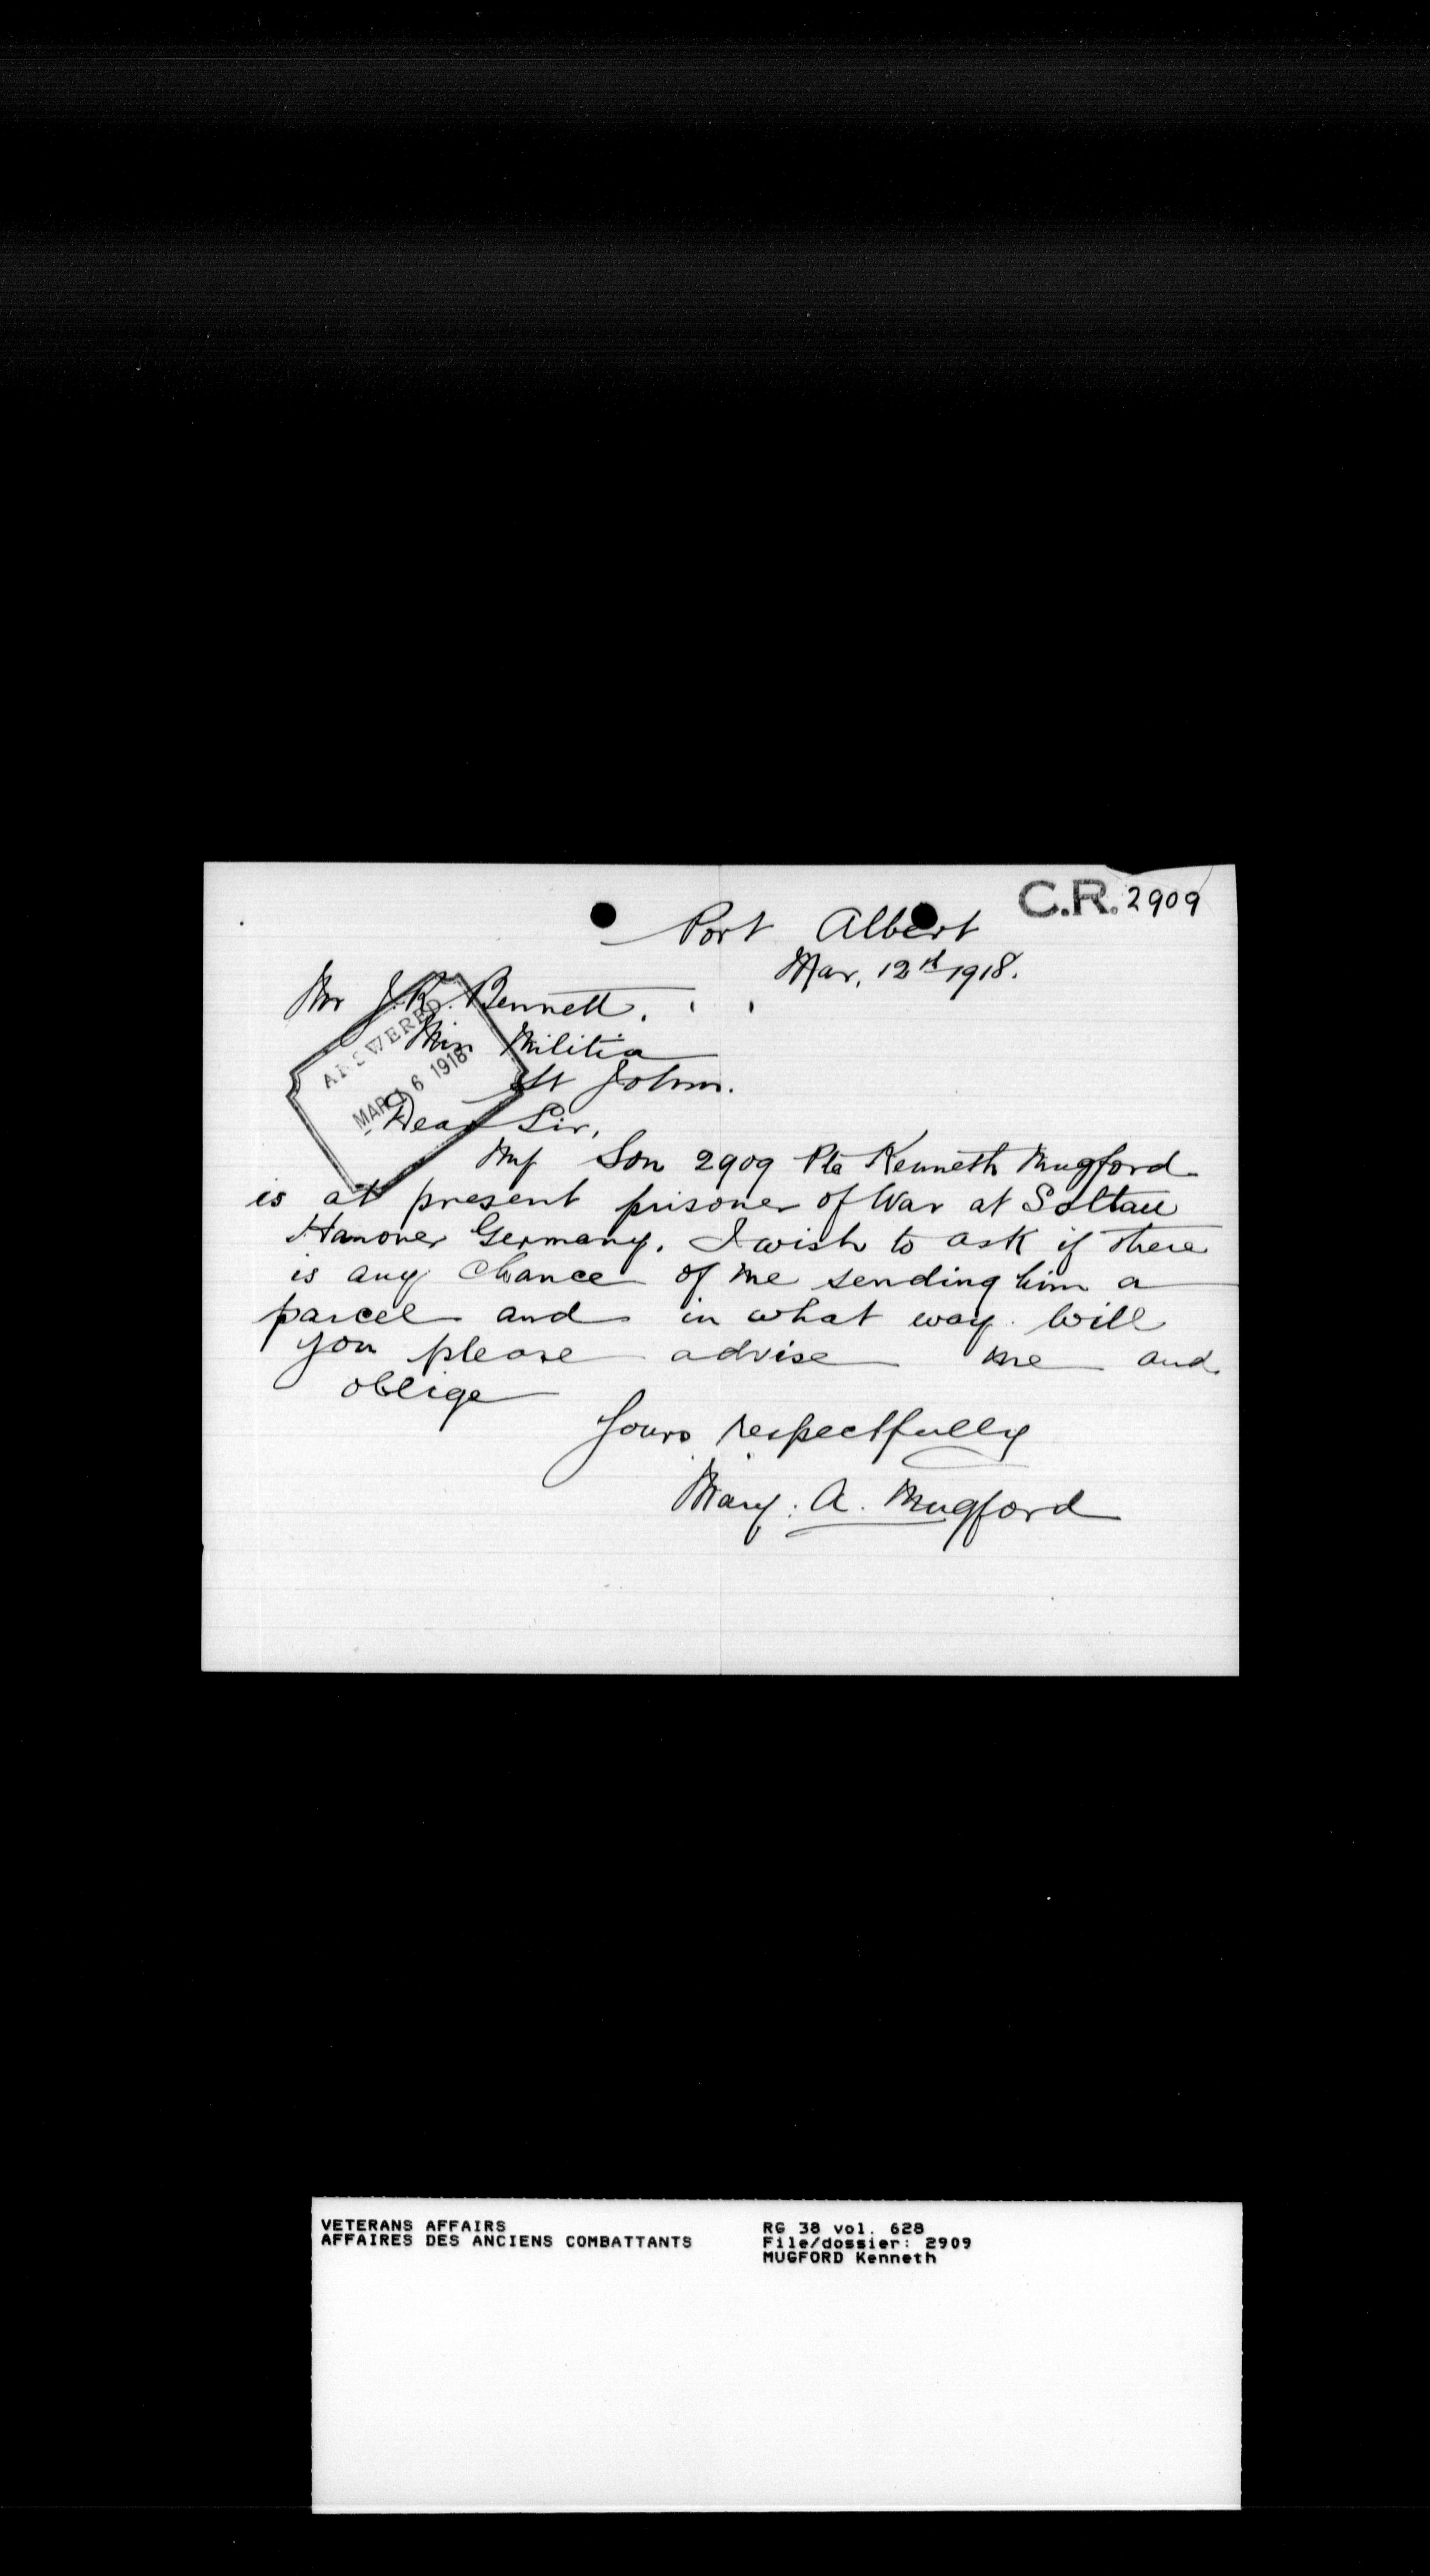 C.R. 2909
Port Albert
Mar, 12th 1918.
Mr J.R. Bennett.
Min Militia
St Johns.
ANSWERED
MAR 16 1918
Dear Sir,
My Son 2909 Pte Kenneth Mugford
is at present prisoner of War at Soltau
Hanover Germany. I wish to ask if there
is any Chance of me sending him a
parcel and in what way. Will
you please advise me and
oblige
Yours respectfully
Mary. A. Mugford
VETERANS AFFAIRS
AFFAIRES DES ANCIENS COMBATTANTS
RG 38 vol. 628
File/dossier: 2909
MUGFORD Kenneth